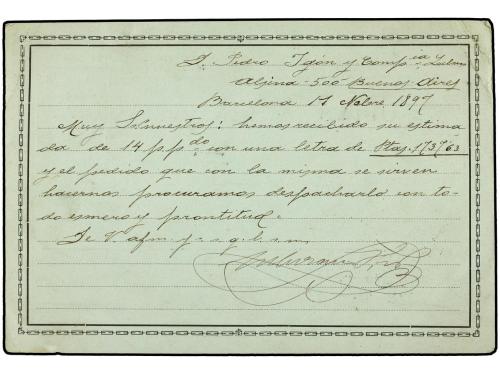 D. Pedro Igón y Comp.ia
Alsina - 500 Buenos Aires
Barcelona 17 Nobre. 1897
Muy Sr. nuestros: hemos recibido su estima
da de 14 p.pdo. con una letra de Ptas. 1737'63
y el pedido que con la misma se sirven
hacernos procuramos despacharlo con to-
do esmero y prontitud.
De V. afm. y. s. q. b. s. m.